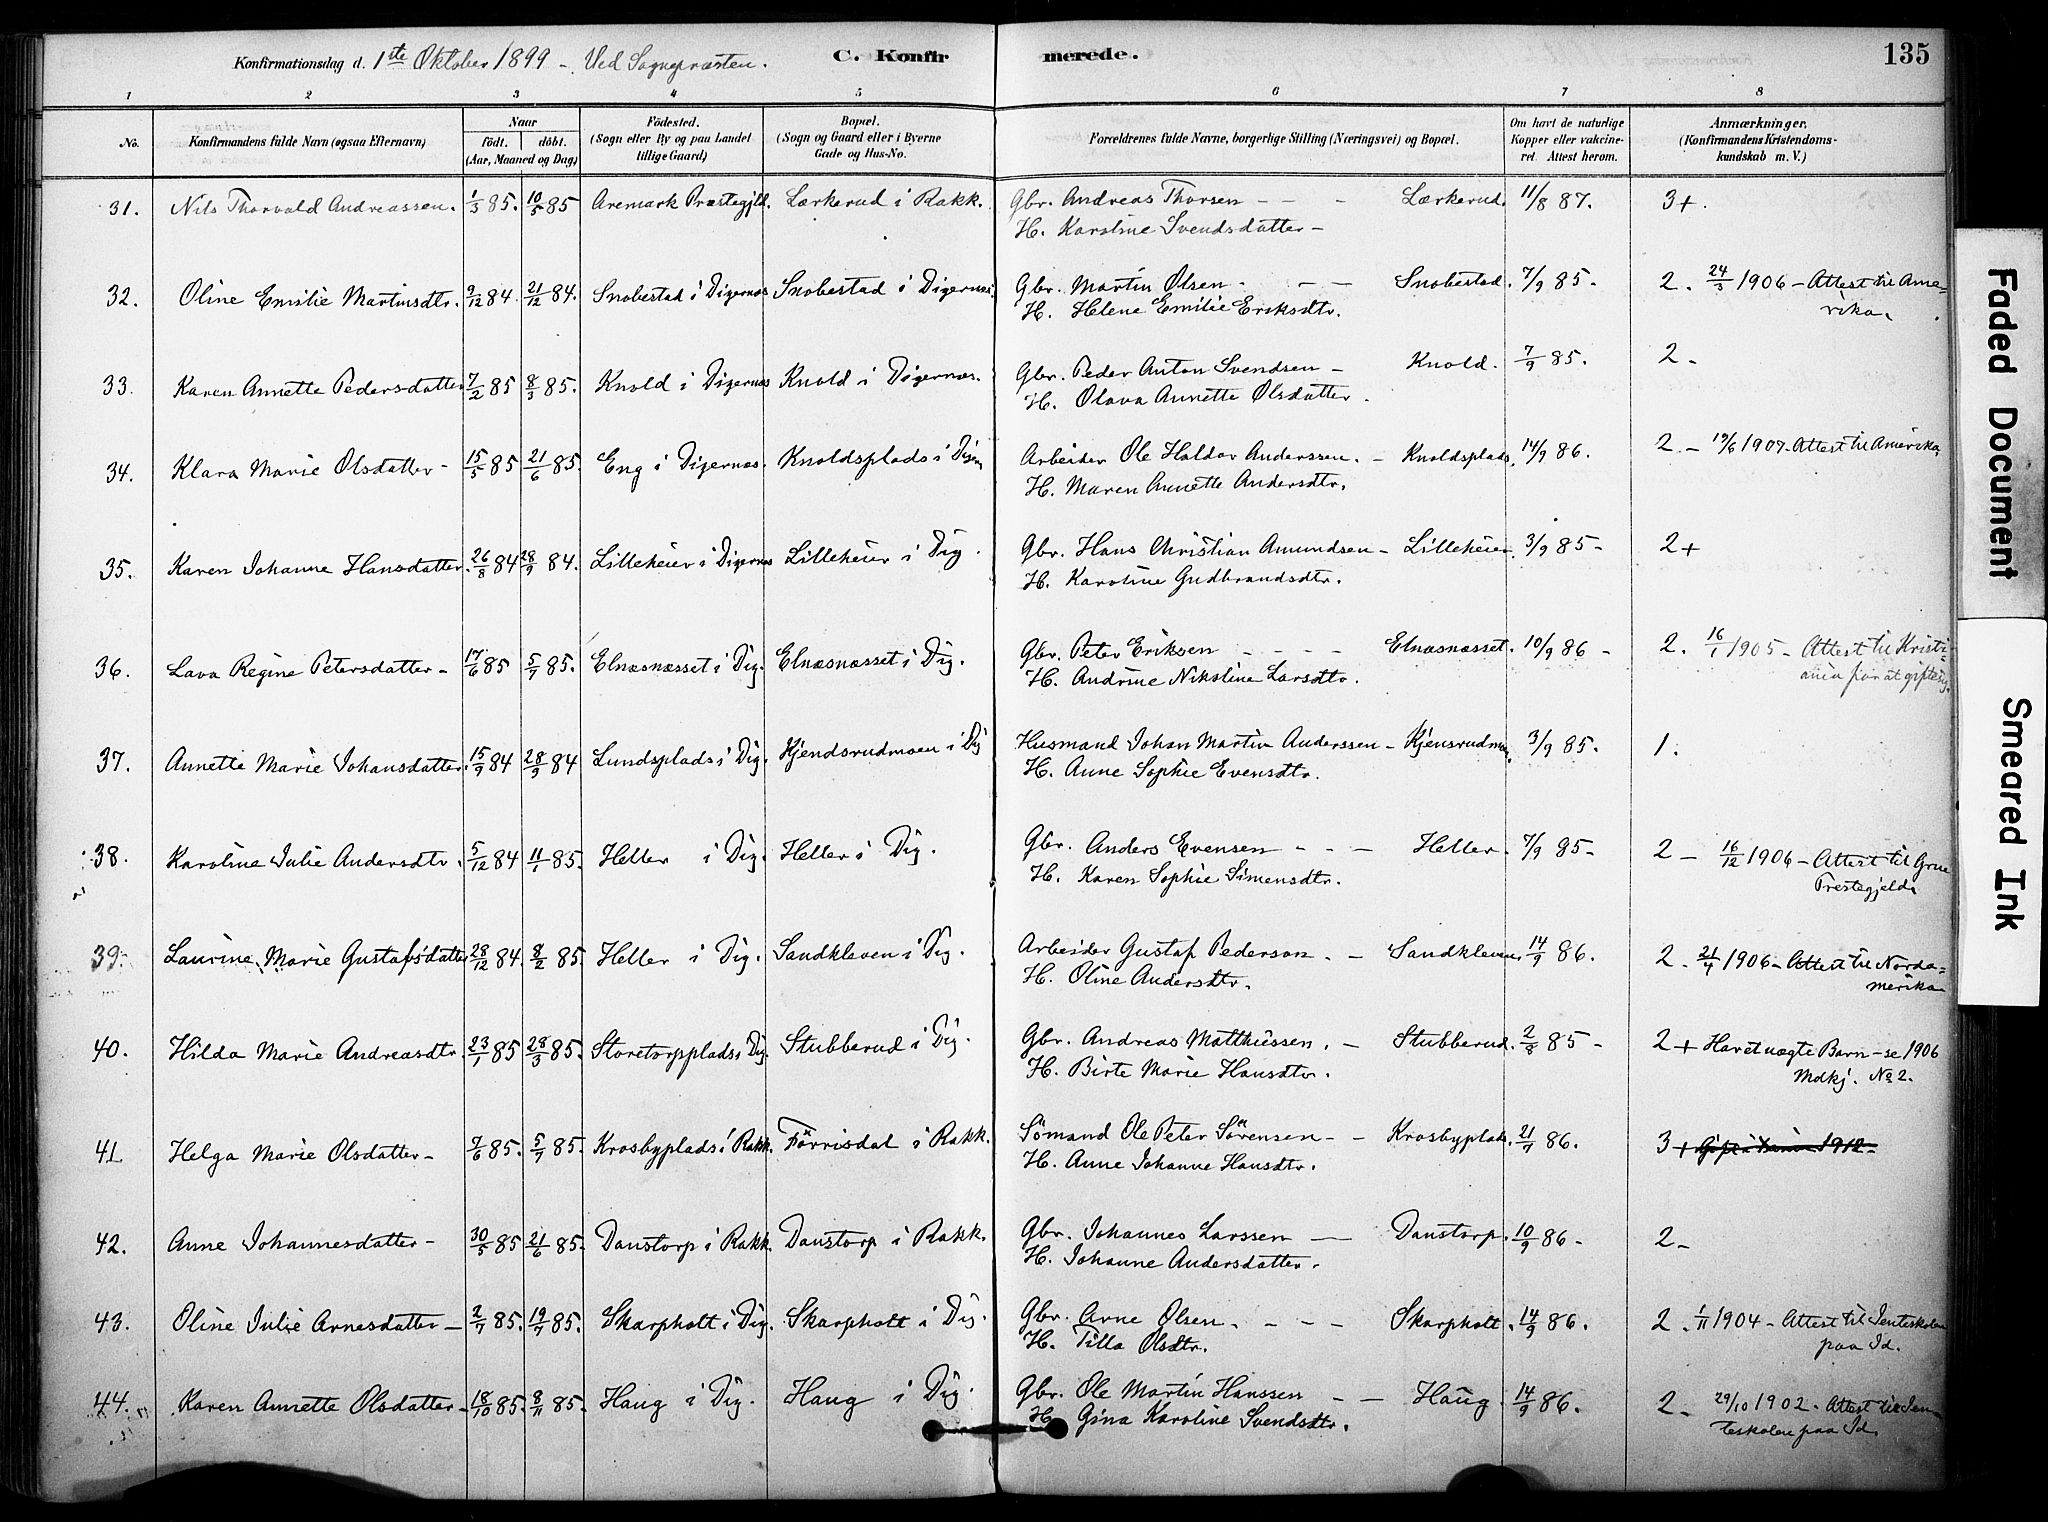 Konfirmationsdag d. 1ste Oktober 1899 – Ved Sognepræsten. C. Konfirmerede. 135
1 2 3 4 5 6 7 8
No. Konfirmandens fulde Navn (ogsaa Efternavn) Naar födt. döbt. (Aar, Maaned og Dag) Födested. (Sogn eller By og paa Landet tillige Gaard) Bopæl. (Sogn og Gaard eller i Byerne Gade og Hus-No. Forældrenes fulde Navne, borgerlige Stilling (Næringsvei) og Bopæl. Om havt de naturlige Kopper eller vakcineret. Attest herom. Anmærkninger. (Konfirmandens Kristendomskundskab m. V.)
31. Nils Thorvald Andreassen. 1/3 85. 10/5 85 Aremark Præstegjld. Lærkerud i Rakk. Gbr. Andreas Thorsen – – – Lærkerud. 11/8 87. 3+.
H. Karoline Svendsdatter –
32. Oline Emilie Martinsdtr. 9/12 84. 21/12 84. Snobestad i Digernæs Snobestad i Digernæs. Gbr. Martin Olsen. – – Snobestad. 7/9 85. 2. 24/3 1906 – Attest til Ame=
H. Helene Emilie Eriksdtr. rika.
33. Karen Annette Pedersdatter 7/2 85 8/3 85. Knold i Digernæs Knold i Digernæs. Gbr. Peder Anton Svendsen – Knold. 7/9 85. 2 –
H. Olava Annette Olsdatter.
34. Klara Marie Olsdatter – 15/5 85 21/6 85. Eng i Digernæs. Knoldsplads i Digern Arbeider Ole Haldor Anderssen. – Knoldsplads. 14/9 86. 2 – 19/6 1907 – Attest til Amerika.
H. Maren Annette Andersdtr.
35. Karen Johanne Hansdatter. 26/8 84 28/9 84. Lilleheier i Digernæs Lilleheier i Dig. Gbr. Hans Christian Amundsen – Lilleheier. 3/9 85 – 2+
H. Karoline Gudbrandsdtr.
36. Lava Regine Petersdatter – 17/6 85 5/7 85. Elnæsnæsset i Dig. Elnæsnæsset i Dig. Gbr. Peter Eriksen – – – – Elnæsnæsset. 10/9 86 – 2. 16/1 1905 – Attest til Kristi=
H. Andrine Nikoline Larsdtr. ania for at gifte sig.
37. Annette Marie Johansdatter. 15/9 84 28/9 84 Lundsplads i Dig. Kjendsrudmoen i Dig Husmand Johan Martin Anderssen – Kjensrudmoen. 3/9 85. 1.
H. Anne Sophie Evensdtr.
38. Karoline Julie Andersdtr. 5/12 84 11/1 85. Heller i Dig. Heller i Dig. Gbr. Anders Evensen – – – Heller. 7/9 85 – 2 – 16/12 1906 – Attest til Grue
H. Karen Sophie Simensdtr. Prestegjeld.
39. Laurine Marie Gustafsdatter 28/12 84. 8/2 85. Heller i Dig. Sandkleven i Dig. Arbeider Gustaf Pederson. – Sandkleven. 14/9 86. 2. 21/4 1906 – Attest til Norda=
H. Oline Andersdtr. merika
40. Hilda Marie Andreasdtr. 23/1 85 28/3 85. Storetorpplads i Dig. Stubberud i Dig. Gbr. Andreas Matthissen. – Stubberud. 2/8 85 – 2+ Har et uægte Barn – se 1906
H. Birte Marie Hansdtr. Mdkj. No 2.
41. Helga Marie Olsdatter – 7/6 85. 5/7 85. Krosbyplads i Rakk. Förrisdal i Rakk. Sömand Ole Peter Sörensen – – Krosbyplads. 21/7 86. 3+ 1912 –
H. Anne Johanne Hansdtr.
42. Anne Johannesdatter – 30/5 85 21/6 85. Danstorp i Rakk. Danstorp i Rakk. Gbr. Johannes Larssen – Danstorp. 10/9 86 – 2 –
H. Johanne Andersdatter.
43. Oline Julie Arnesdatter – 2/7 85. 19/7 85. Skarpholt i Dig. Skarpholt i Dig. Gbr. Arne Olsen. – – – Skarpholt. 14/9 86. 2. 1/11 1904 – Attest til Jenteskolen
H. Tilla Olsdtr. paa Id.
44. Karen Annette Olsdatter – 18/10 85. 8/11 85. Haug i Dig. Haug i Dig. Gbr. Ole Martin Hanssen – – Haug. 14/9 86. 2 – 29/10 1902. Attest til Jen=
H. Gina Karoline Svendsdtr. teskolen paa Id.
Faded Document
Smeared Ink